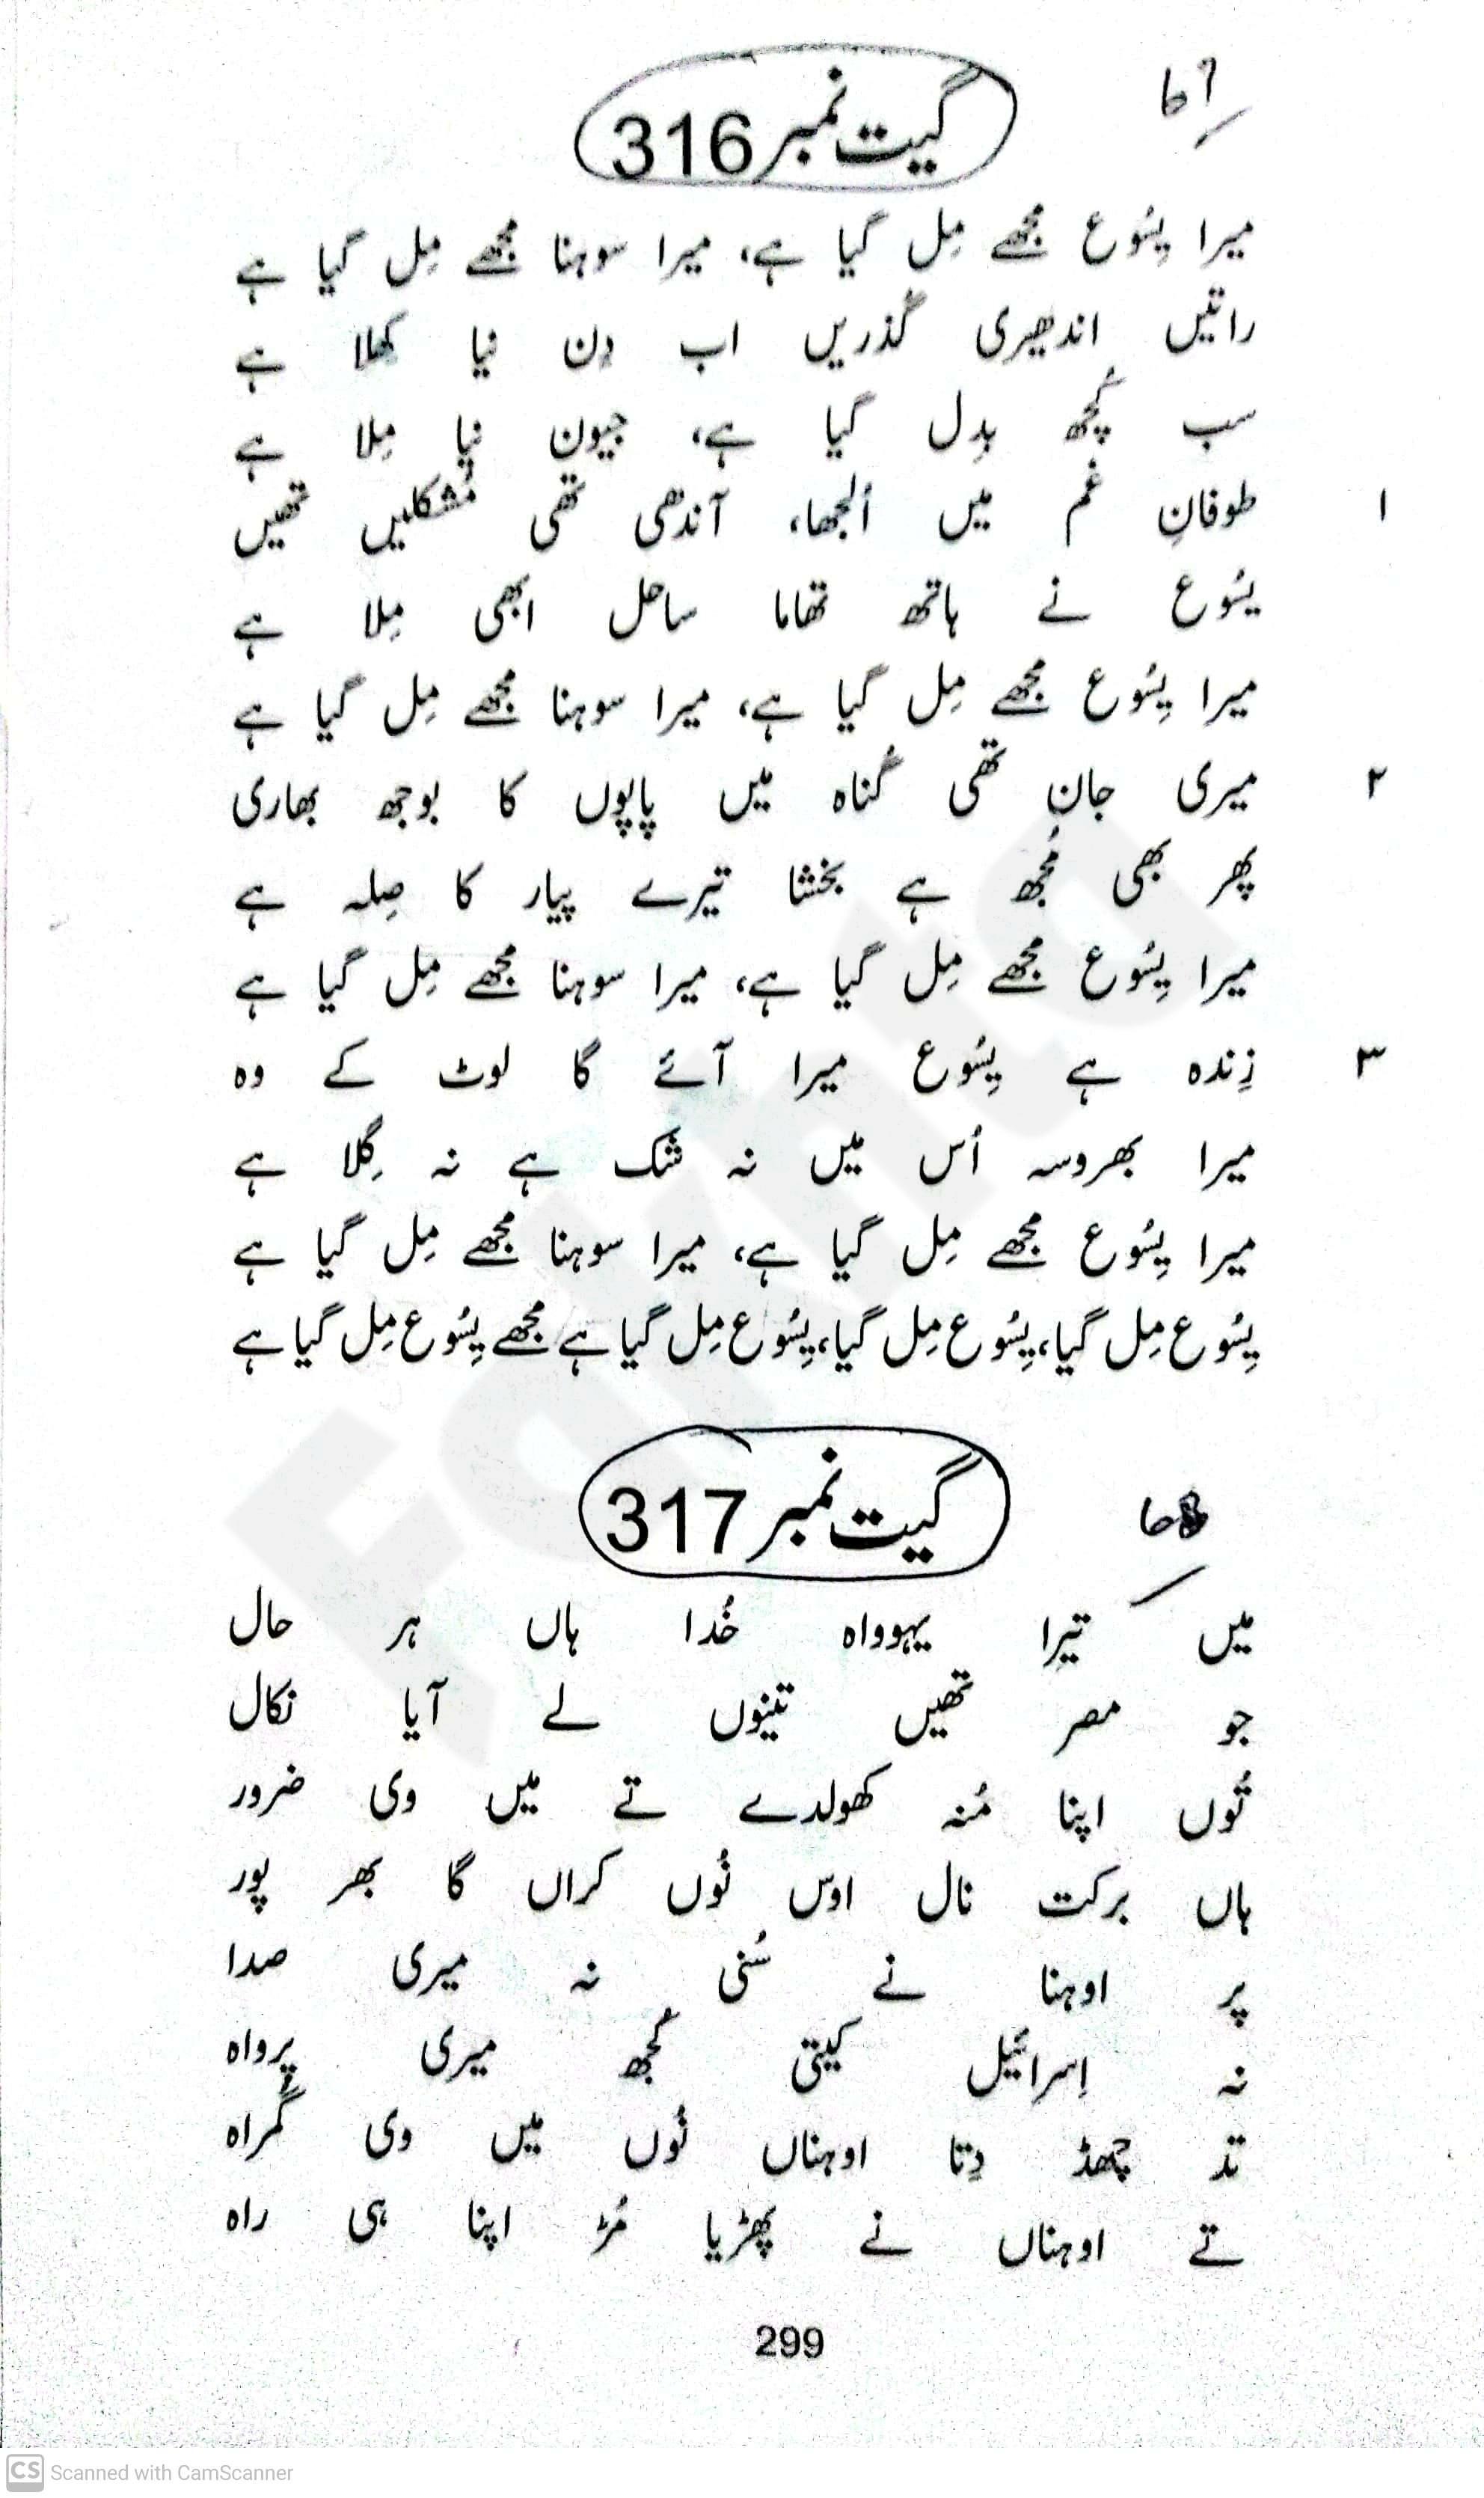 گیت نمبر 316
میرا یِسُوع مجھے مِل گیا ہے، میرا سوہنا مجھے مِل گیا ہے
راتیں اندھیری گُذریں اب دِن نیا کھلا ہے
سب کُچھ بدِل گیا ہے، جیون نیا مِلا ہے
۱ طوفانِ غم میں اُلجھا، آندھی تھی مُشکلیں تھیں
یسُوع نے ہاتھ تھاما ساحل ابھی مِلا ہے
میرا یِسُوع مجھے مِل گیا ہے، میرا سوہنا مجھے مِل گیا ہے
۲ میری جان تھی گُناہ میں پاپوں کا بوجھ بھاری
پھر بھی مُجھ ہے بخشا تیرے پیار کا صِلہ ہے
میرا یِسُوع مجھے مِل گیا ہے، میرا سوہنا مجھے مِل گیا ہے
۳ زِندہ ہے یِسُوع میرا آئے گا لوٹ کے وہ
میرا بھروسہ اُس میں نہ شک ہے نہ گِلا ہے
میرا یِسُوع مجھے مِل گیا ہے، میرا سوہنا مجھے مِل گیا ہے
یِسُوع مِل گیا، یِسُوع مِل گیا، یِسُوع مِل گیا ہے مجھے یِسُوع مِل گیا ہے
گیت نمبر 317
میں تیرا یہوواہ خُدا ہاں ہر حال
جو مصر تھیں تینوں لے آیا نکال
تُوں اپنا مُنہ کھولدے تے میں وی ضرور
ہاں برکت نال اوس نُوں کراں گا بھر پور
پر اوہنا نے سُنی نہ میری صدا
نہ اِسرائیل کیتی کُجھ میری پرواہ
تد چھڈ دِتا اوہناں نُوں میں وی گُمراہ
تے اوہناں نے پھڑیا مُڑ اپنا ہی راہ
299
CS Scanned with CamScanner